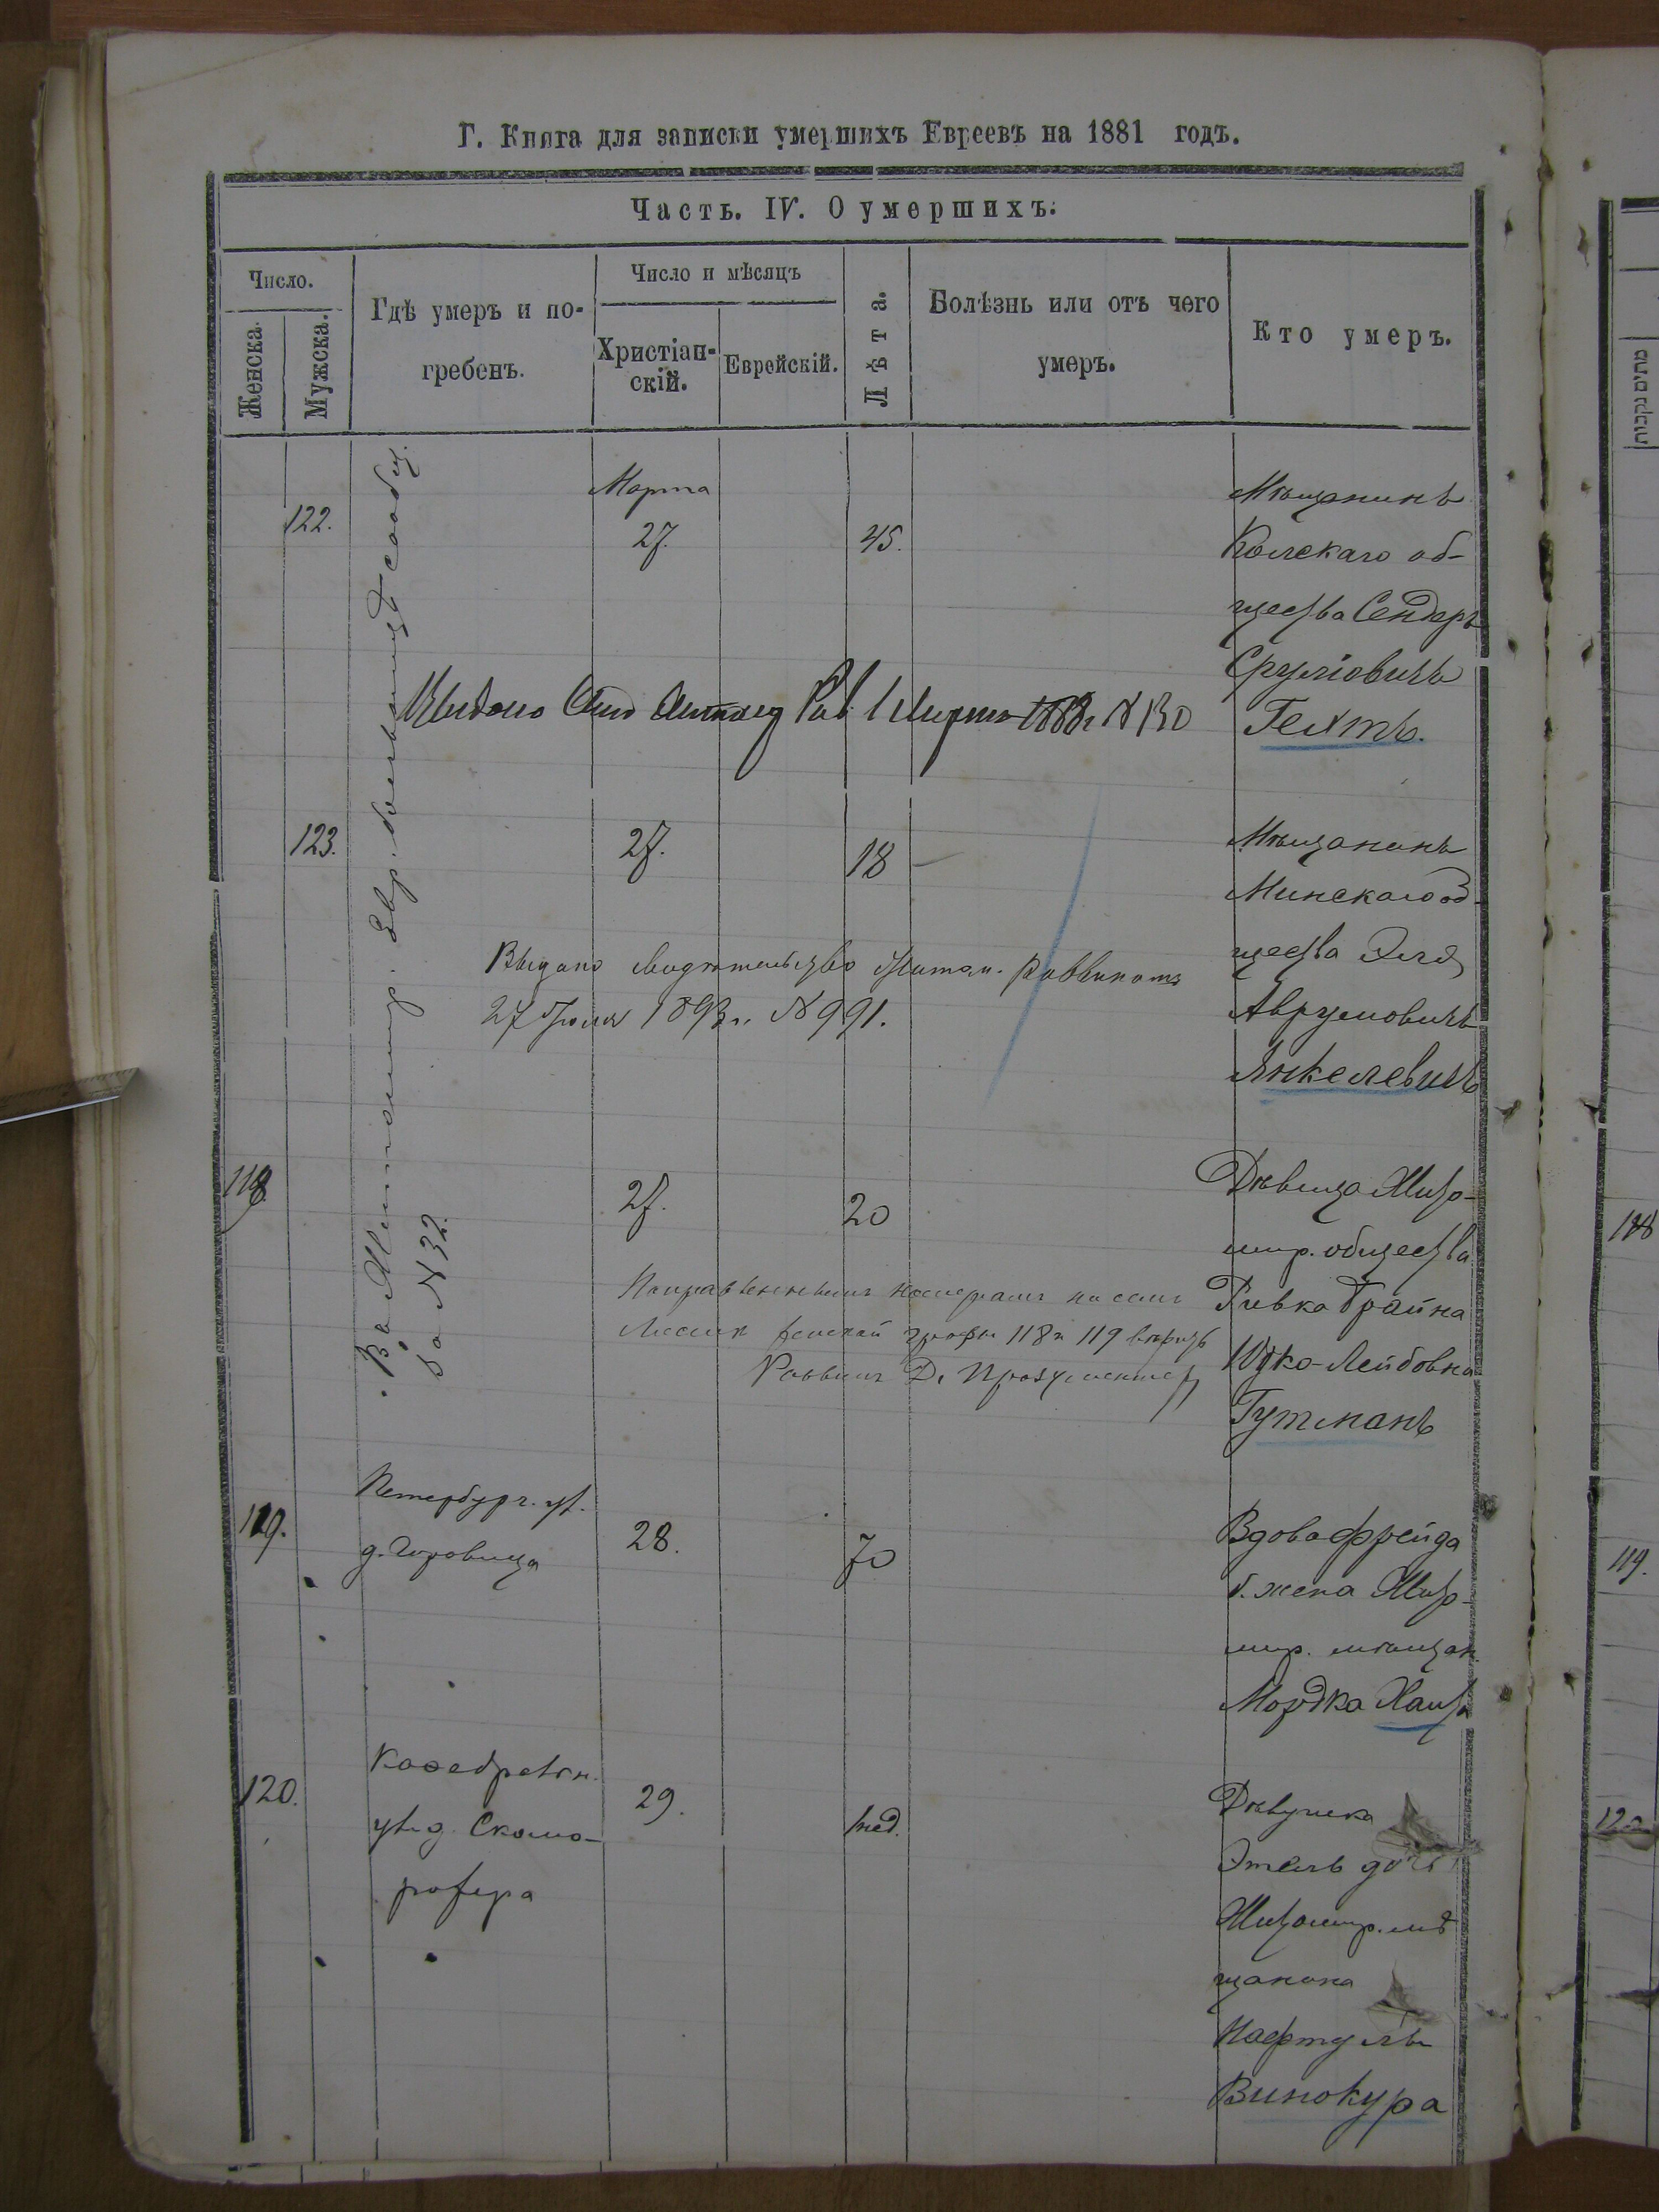 Г. Книга для записки умершихъ Евреевъ на 1881 годъ.
Часть. IV. О умершихъ.
Число.
Женска.
Мужска.
Гдѣ умеръ и по-
гребенъ.
Число и мѣсяцъ
Христіан-
скій.
Еврейскій.
Лѣта.
Болѣзнь или отъ чего
умеръ.
Кто умеръ.
Въ Житомир. Евр. больницѣ сообщ.
за N 32.
122.
Марта
27.
45.
Мѣщанинъ
об-
щества Сендеръ
Сруліовичъ
Гехтъ.
Выдано Рав 1 Марта N 130
123.
27.
18
Мѣщанинъ
Минскаго об-
щества Эля
Аврумовичъ
Янкелевичъ
Выдано свидѣтельство Житом. Раввиномъ
27 1893 г. N 991.
118
27.
20
Дѣвица Жито-
мир. общества
Ривка Брайна
Ицко-Лейбовна
Гутманъ
номерамъ на семъ
женской графы 118 и 119 вѣрить
Раввинъ Д.
119.
Петербург. ул.
д. Горовица
28.
70
Вдова Фрейда
б. жена Жито-
мир. мѣщан.
Мордка
120.
Кафедральн.
ул. д. Скомо-
ровера
29.
1 нед.
Дѣвушка
Этель дочь
Житомир. мѣ
щанина
Нафтулы
Винокура
118
119.
120